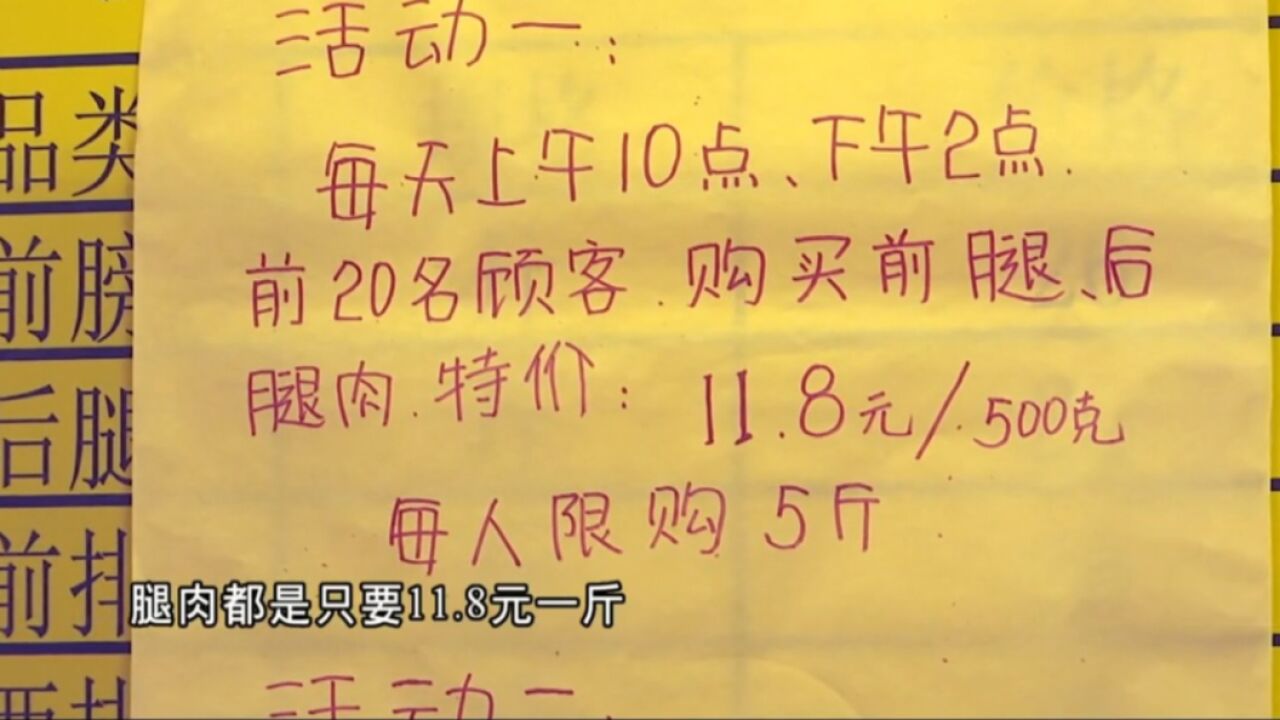 活动一:
每天上午10点、下午2点.
前20名顾客.购买前腿、后
腿肉.特价: 11.8元/500克
每人限购5斤
腿肉都是只要11.8元一斤
品类
前膀
后腿
前排